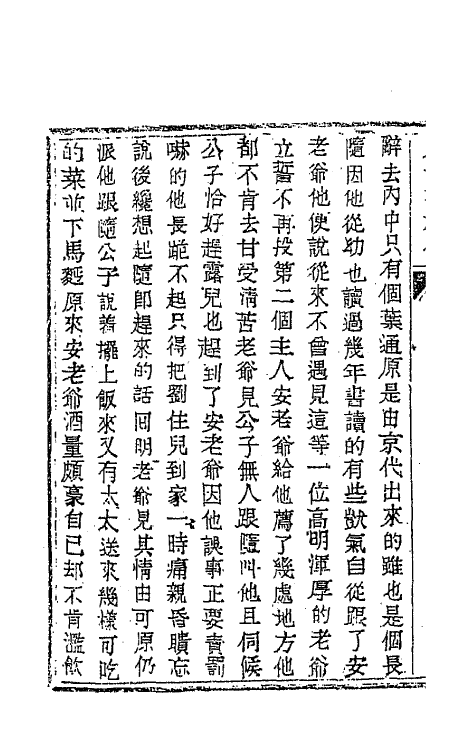 辭去內中只有個葉通原是由京代出來的雖也是個長
隨因他從幼也讀過幾年書讀的有些獃氣自從跟了安
老爺他便說從來不曾遇見這等一位高明渾厚的老爺
立誓不再投第二個主人安老爺給他薦了幾處地方他
都不肯去甘受清苦老爺見公子無人跟隨叫他且伺候
公子恰好趕露兒也趕到了安老爺因他誤事正要責罰
嚇的他長跪不起只得把劉住兒到家一時痛親昏聵忘
說後纔想起隨卽趕來的話回明老爺見其情由可原仍
派他跟隨公子說着擺上飯來又有太太送來幾樣可吃
的菜並下馬麵原來安老爺酒量頗豪自己却不肯濫飲